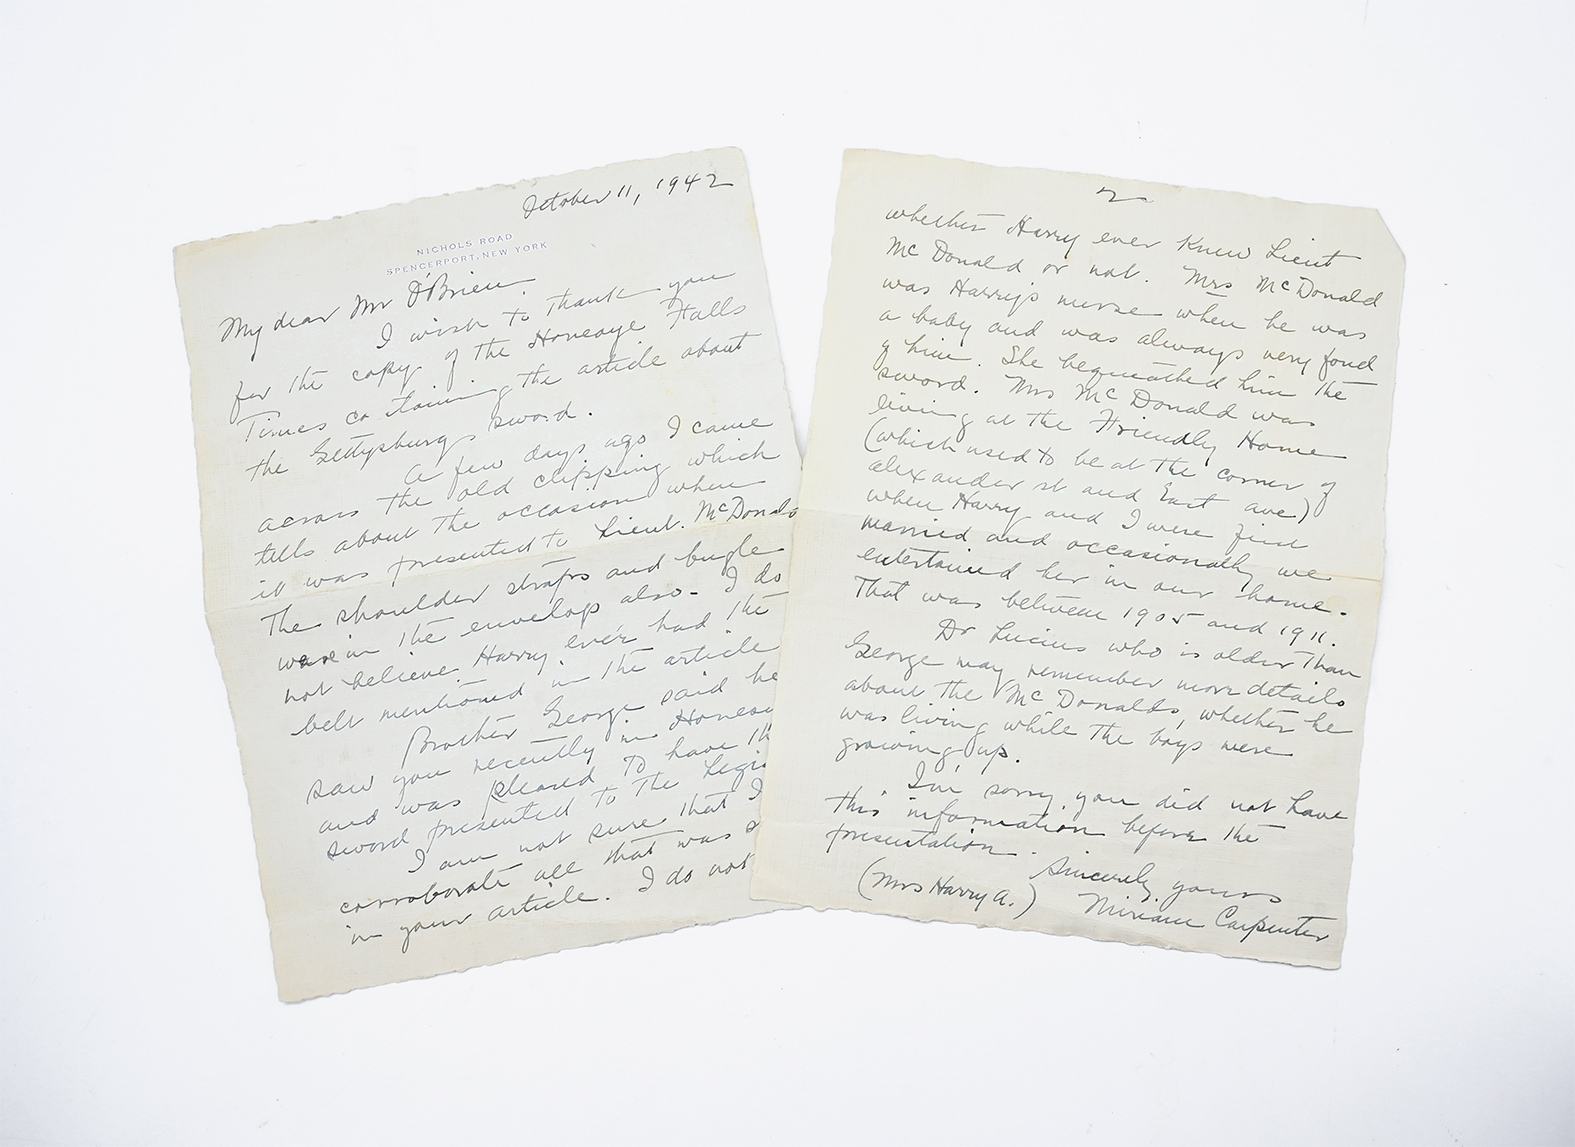 October 11, 1942
NICHOLS ROAD
SPENCERPORT, NEW YORK
My dear Mr O'Brien
I wish to thank you
for the copy of the Honeoye Falls
Times containing the article about
the Gettysburg sword.
A few days ago I came
across the old clipping which
tells about the occasion when
it was presented to Lieut. McDonald
The shoulder straps and bugle
were in the envelop also - I do
not believe Harry ever had the
belt mentioned in the article
Brother George said he
saw you recently in Honeoy
and was pleased to have th
sword presented to the Legi
I am not sure that I
corroborate all that was s
in your article. I do not
2
whether Harry ever knew Lieut
McDonald or not. Mrs McDonald
was Harry's nurse when he was
a baby and was always very fond
of him. She bequeathed him the
sword. Mrs McDonald was
living at the Friendly Home
(which used to be at the corner of
Alexander st and East ave)
when Harry and I were first
married and occasionally we
entertained her in our home -
That was between 1905 and 1911.
Dr Lucius who is older than
George may remember more details
about the McDonalds, whether he
was living while the boys were
growing up.
I'm sorry you did not have
this information before the
presentation.
Sincerely yours
(Mrs Harry A.) Miriam Carpenter